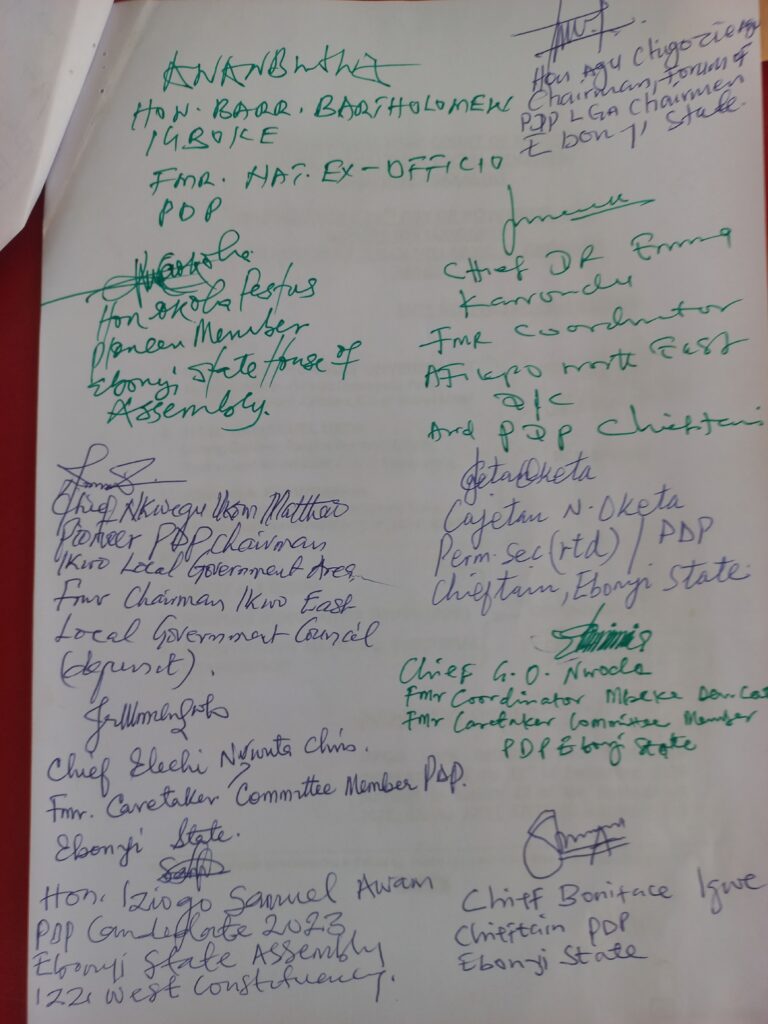 HON. BARR. BARTHOLOMEW
IGBOKE
FMR. NAT. EX-OFFICIO
PDP
Hon Agu Chigozie
Chairman, Forum of
PDP LGA Chairmen
Ebonyi State.
Hon Okoha Festus
Pioneer Member
Ebonyi State House of
Assembly.
Chief DR Emma
FMR Coordinator
AFIKPO North East
D/C
And PDP Chieftain
Chief Nkwegu Matthew
Pioneer PDP Chairman
Ikwo Local Government Area
Fmr Chairman Ikwo East
Local Government Council
Cajetan N. Oketa
Perm. Sec (rtd) / PDP
Chieftain, Ebonyi State.
Chief G. O. Nwode
Fmr Coordinator Mbeke
Fmr Caretaker Committee Member
PDP Ebonyi State
Chief Elechi Chris.
Fmr. Caretaker Committee Member PDP.
Ebonyi State.
Hon. Iziogo Samuel Awam
PDP Candidate 2023
Ebonyi State Assembly
Izzi West Constituency.
Chief Boniface Igwe
Chieftain PDP
Ebonyi State